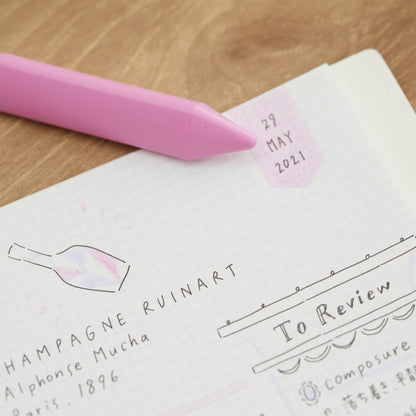 29
MAY
2021
CHAMPAGNE RUINART
Alphonse Mucha
Paris, 1896
To Review
Composure
落ち着き、平静